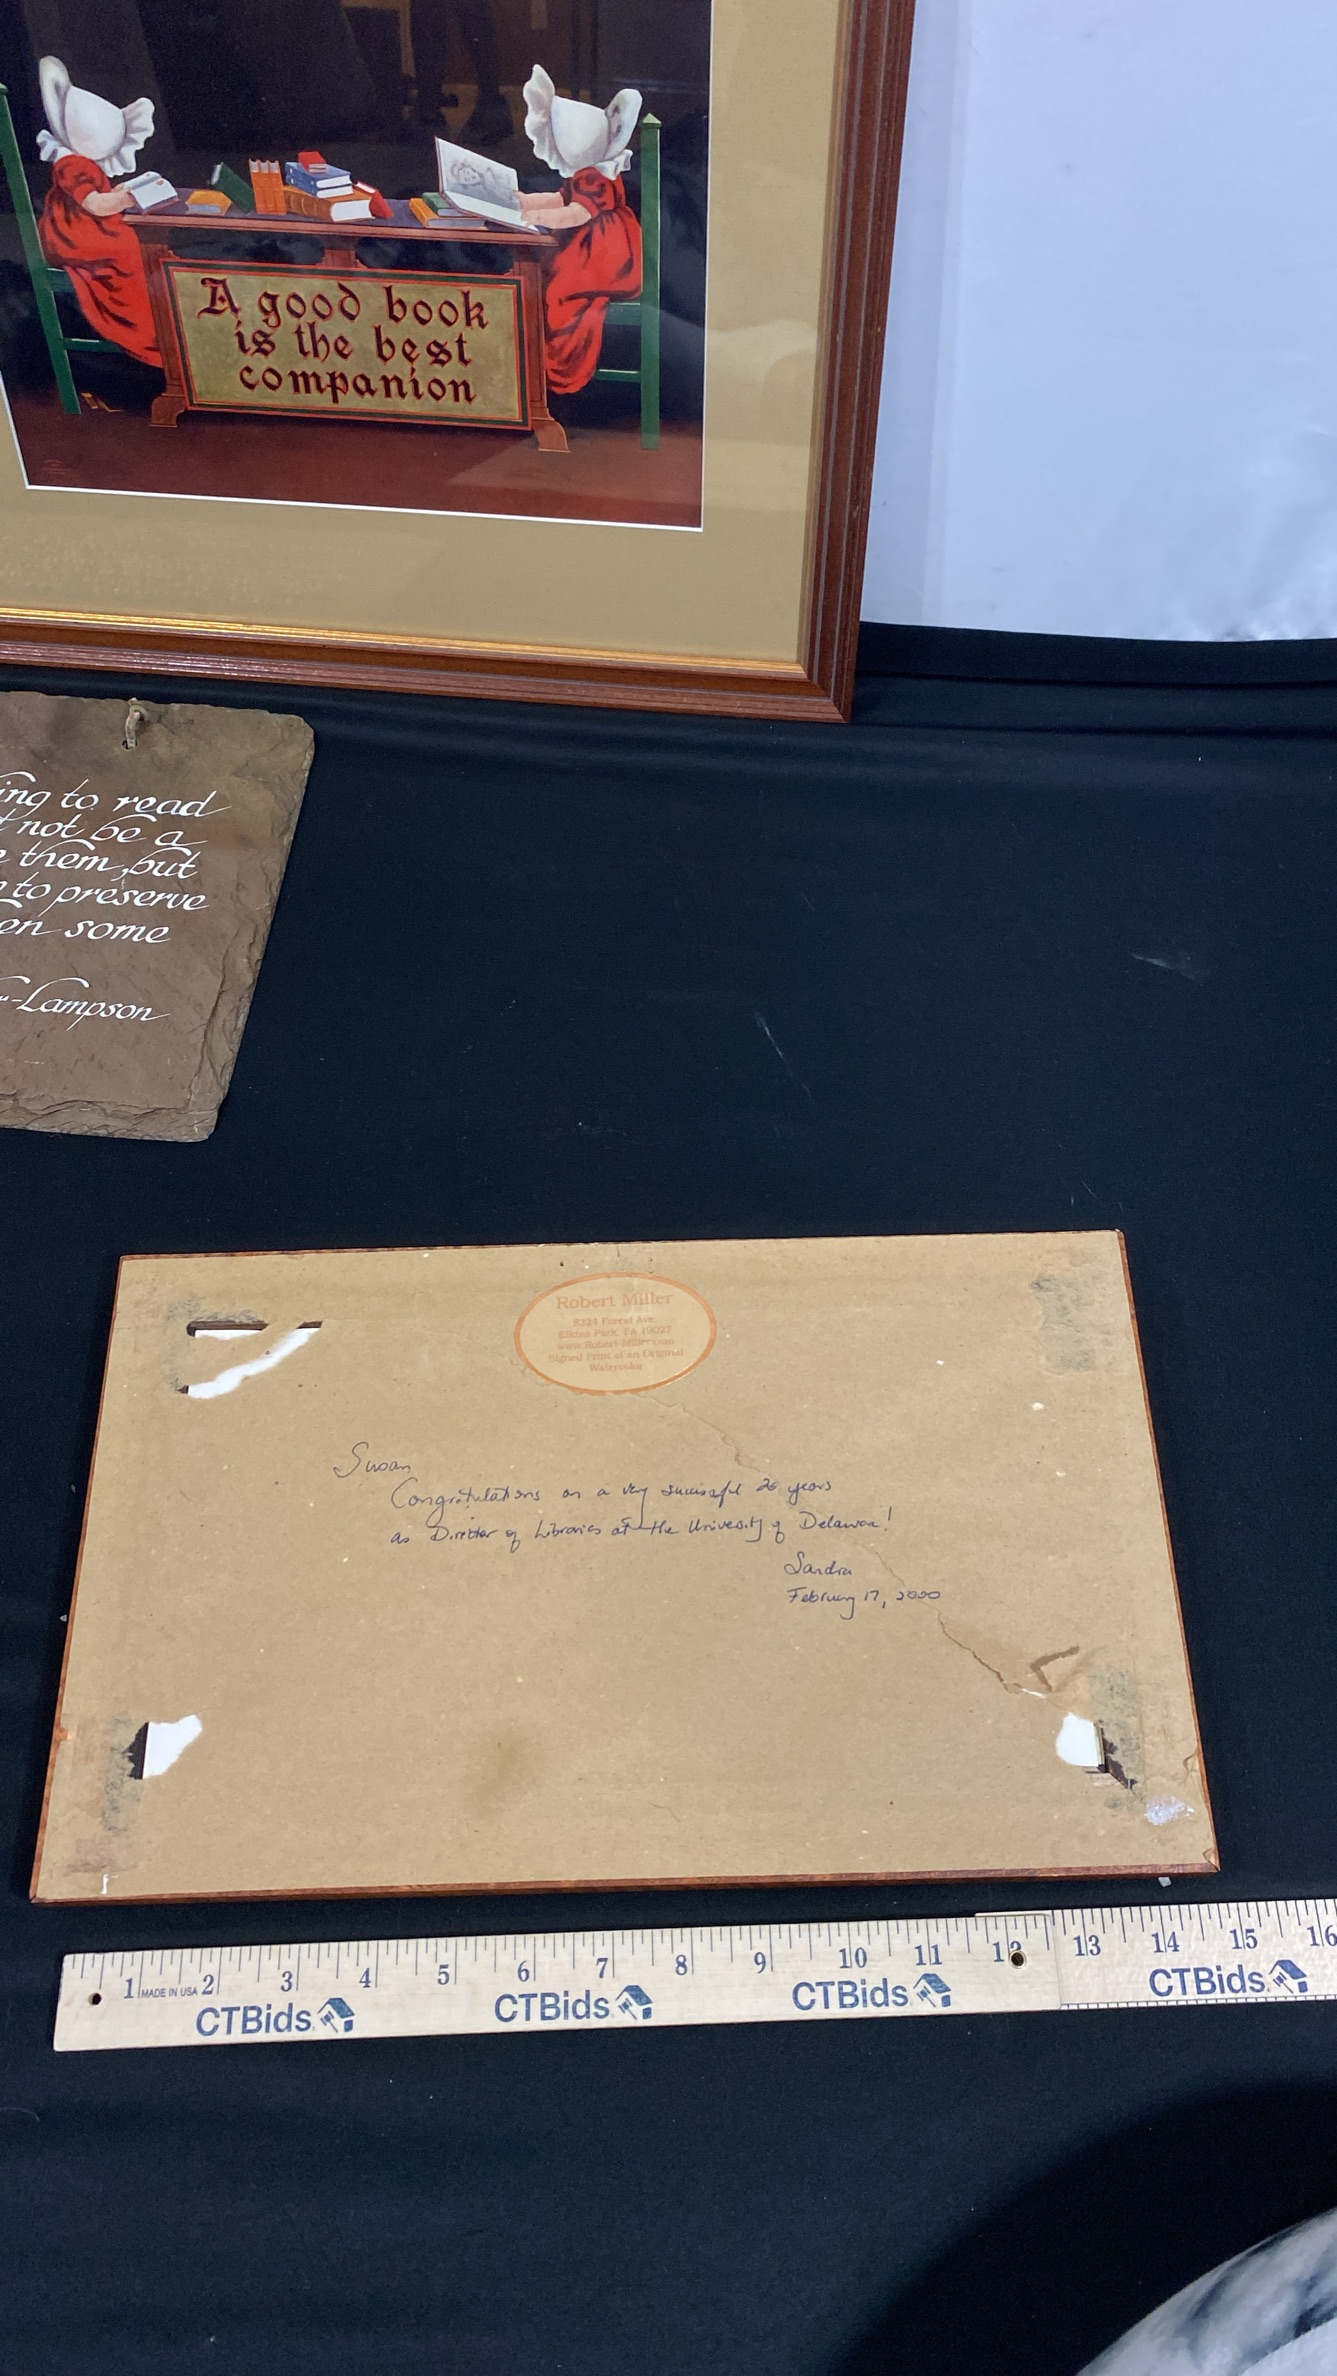 A good book
is the best
companion
ing to read
not be a
them, but
to preserve
en some
-Lampson
Robert Miller
8324 Forest Ave.
Elkins Park, PA 19027
www.Robert-Miller.com
Signed Print of an Original
Watercolor
Susan
Congratulations on a very successful 20 years
as Director of Libraries at the University of Delaware!
Sandra
February 17, 2000
1 MADE IN USA 2 3 4 5 6 7 8 9 10 11 12 13 14 15 16
CTBids CTBids CTBids CTBids